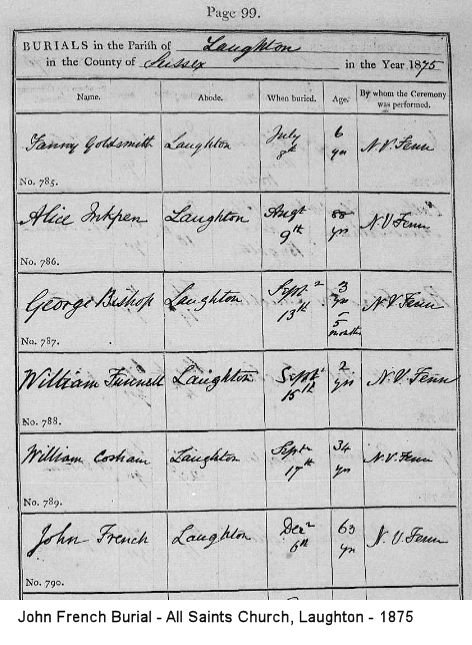 Page 99.
BURIALS in the Parish of Laughton
in the County of Sussex in the Year 1875
Name. Abode. When buried. Age. By whom the Ceremony was performed.
Fanny Goldsmith Laughton July 8th 6 yrs N. V. Fenn
No. 785.
Alice Inkpen Laughton Augt 9th 88 yrs N V Fenn
No. 786.
George Bishop Laughton Septr 13th 3 yrs 5 months N V Fenn
No. 787.
William Funnell Laughton Septr 15th 2 yrs N. V. Fenn
No. 788.
William Cosham Laughton Septr 17th 34 yrs N V Fenn
No. 789.
John French Laughton Decr 6th 63 yrs N. V. Fenn
No. 790.
John French Burial - All Saints Church, Laughton - 1875